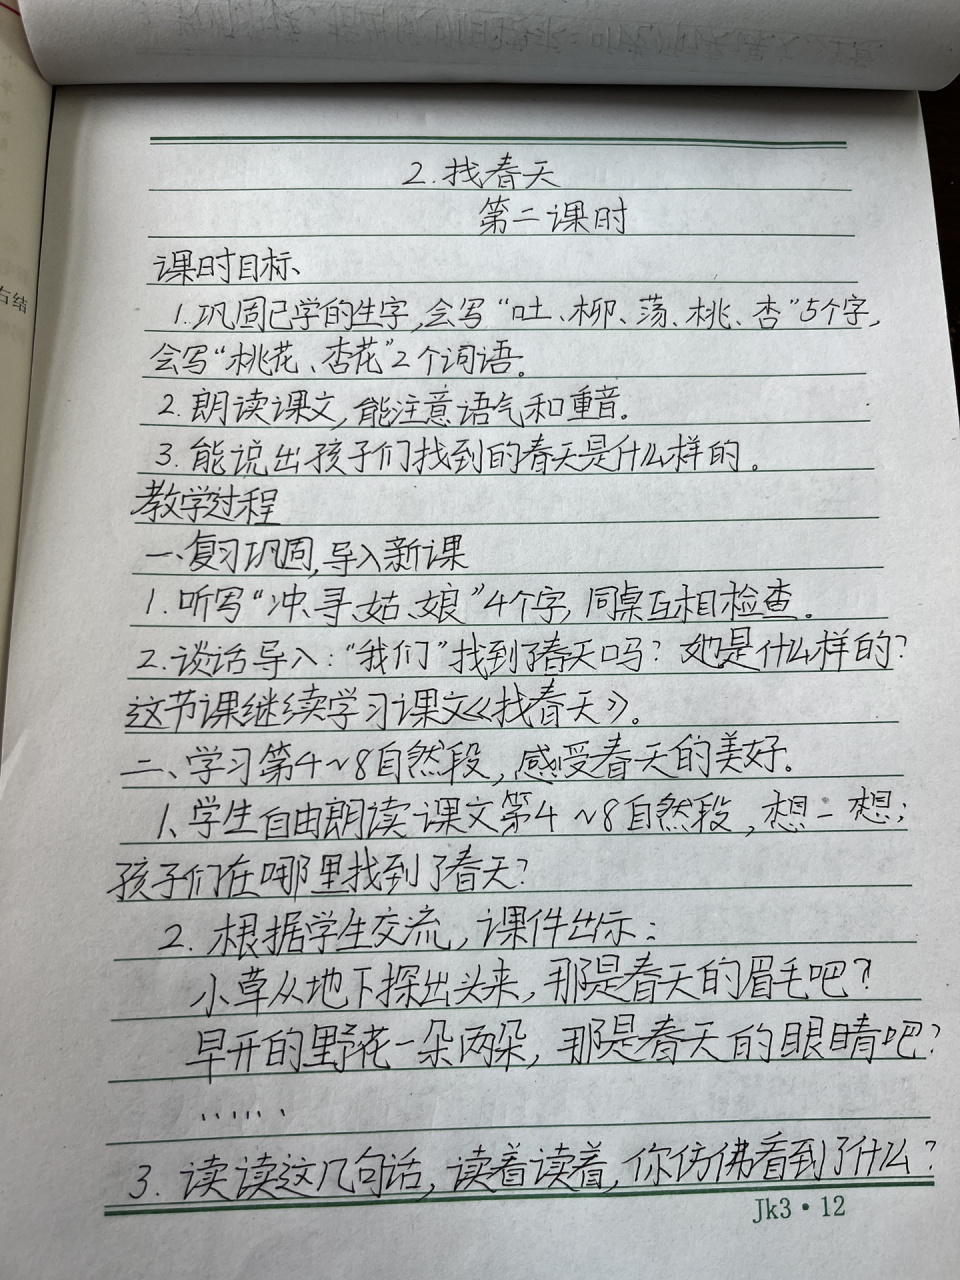 右结
2.找春天
第二课时
课时目标、
1.巩固已学的生字,会写“吐、柳、荡、桃、杏”5个字,
会写“桃花、杏花”2个词语。
2.朗读课文,能注意语气和重音。
3.能说出孩子们找到的春天是什么样的。
教学过程
一、复习巩固,导入新课
1.听写“冲、寻、姑、娘”4个字,同桌互相检查。
2.谈话导入:“我们”找到了春天吗?她是什么样的?
这节课继续学习课文《找春天》。
二、学习第4~8自然段,感受春天的美好。
1、学生自由朗读课文第4~8自然段,想一想;
孩子们在哪里找到了春天?
2.根据学生交流,课件出示:
小草从地下探出头来,那是春天的眉毛吧?
早开的野花一朵两朵,那是春天的眼睛吧?
……
3.读读这几句话,读着读着,你仿佛看到了什么?
Jk3·12